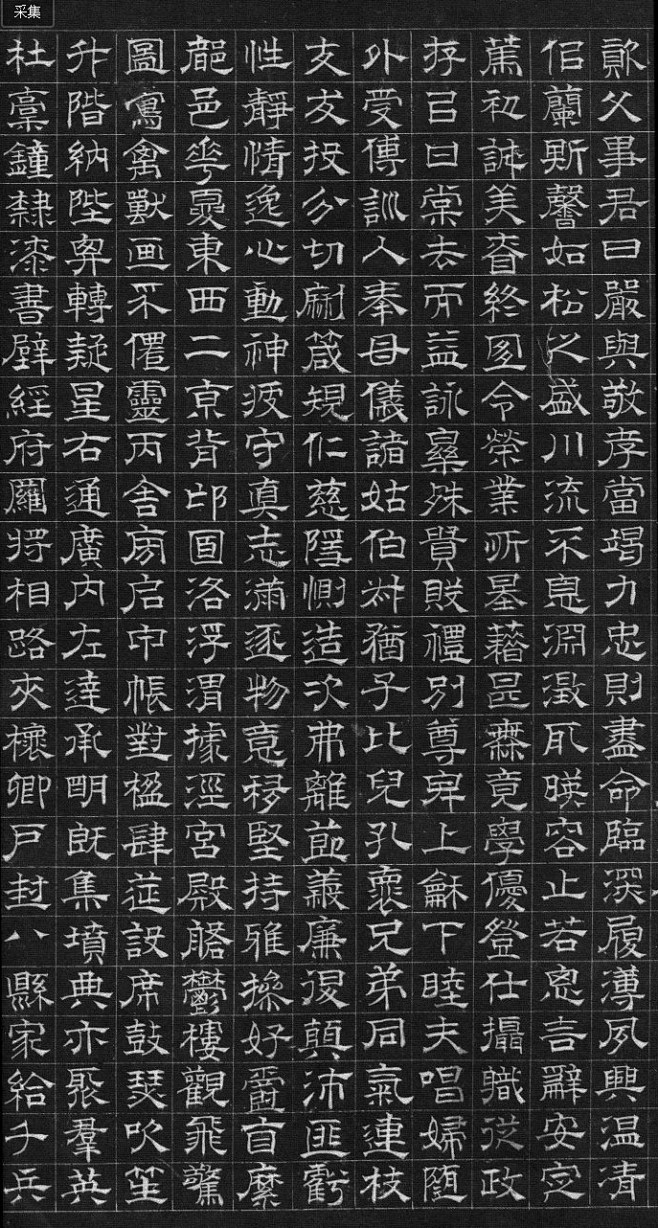 采集
資父事君曰嚴與敬孝當竭力忠則盡命臨深履薄夙興溫凊
似蘭斯馨如松之盛川流不息淵澂取暎容止若思言辭安定
篤初誠美慎終宜令榮業所基籍甚無竟學優登仕攝職從政
存以甘棠去而益詠樂殊貴賤禮別尊卑上龢下睦夫唱婦隨
外受傅訓入奉母儀諸姑伯叔猶子比兒孔懷兄弟同氣連枝
交友投分切劘箴規仁慈隱惻造次弗離節義廉退顛沛匪虧
性靜情逸心動神疲守真志滿逐物意移堅持雅操好爵自縻
都邑華夏東西二京背邙面洛浮渭據涇宮殿盤鬱樓觀飛驚
圖寫禽獸画采僊靈丙舍傍启甲帳對楹肆筵設席鼓瑟吹笙
升階納陛弁轉疑星右通廣內左達承明既集墳典亦聚羣英
杜稾鐘隸漆書壁經府羅將相路夾槐卿戶封八縣家給千兵